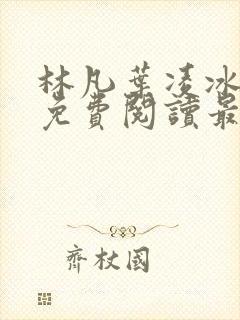 林凡葉凌冰
免費閱讀最
齊杖國